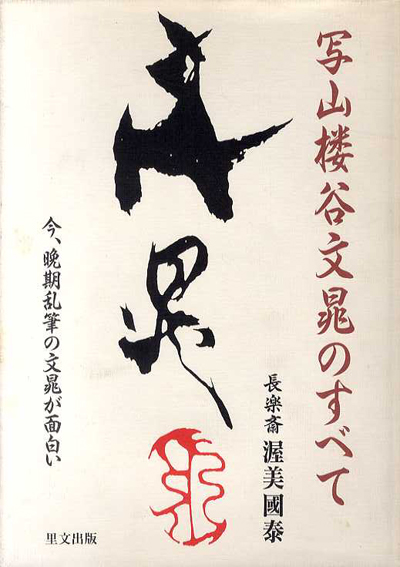 写山楼谷文晁のすべて
長楽斎 渥美國泰
文晁
今、晩期乱筆の文晁が面白い
里文出版